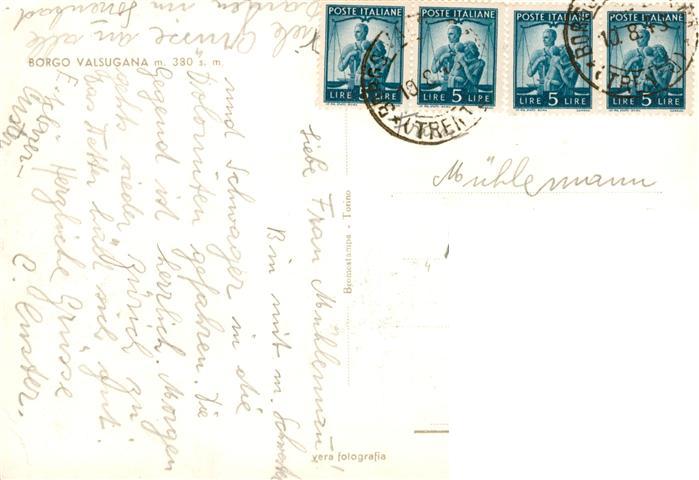 BORGO VALSUGANA m. 380 s. m.
POSTE ITALIANE
LIRE 5 LIRE
POSTE ITALIANE
LIRE 5 LIRE
POSTE ITALIANE
LIRE 5 LIRE
POSTE ITALIANE
LIRE 5 LIRE
Mühlemann
Bromostampa - Torino
vera fotografia
Liebe Frau Mühlemann!
Bin mit m. Schwester
und Schwager in die
Dolomiten gefahren. Die
Gegend ist herrlich. Morgen
geht's wieder Zürich zu.
Das Wetter hält sich gut.
Herzliche Grüsse
Viele Grüsse an alle